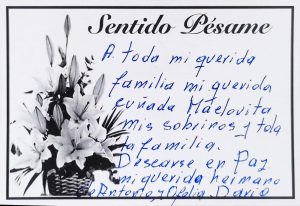 Sentido Pésame
A. toda mi querida
familia mi querida
cuñada Maelovita
mis sobriros y toda
la familia.
Descarse en Paz
mi querida heimano
de Antonio y Ofelia Dario